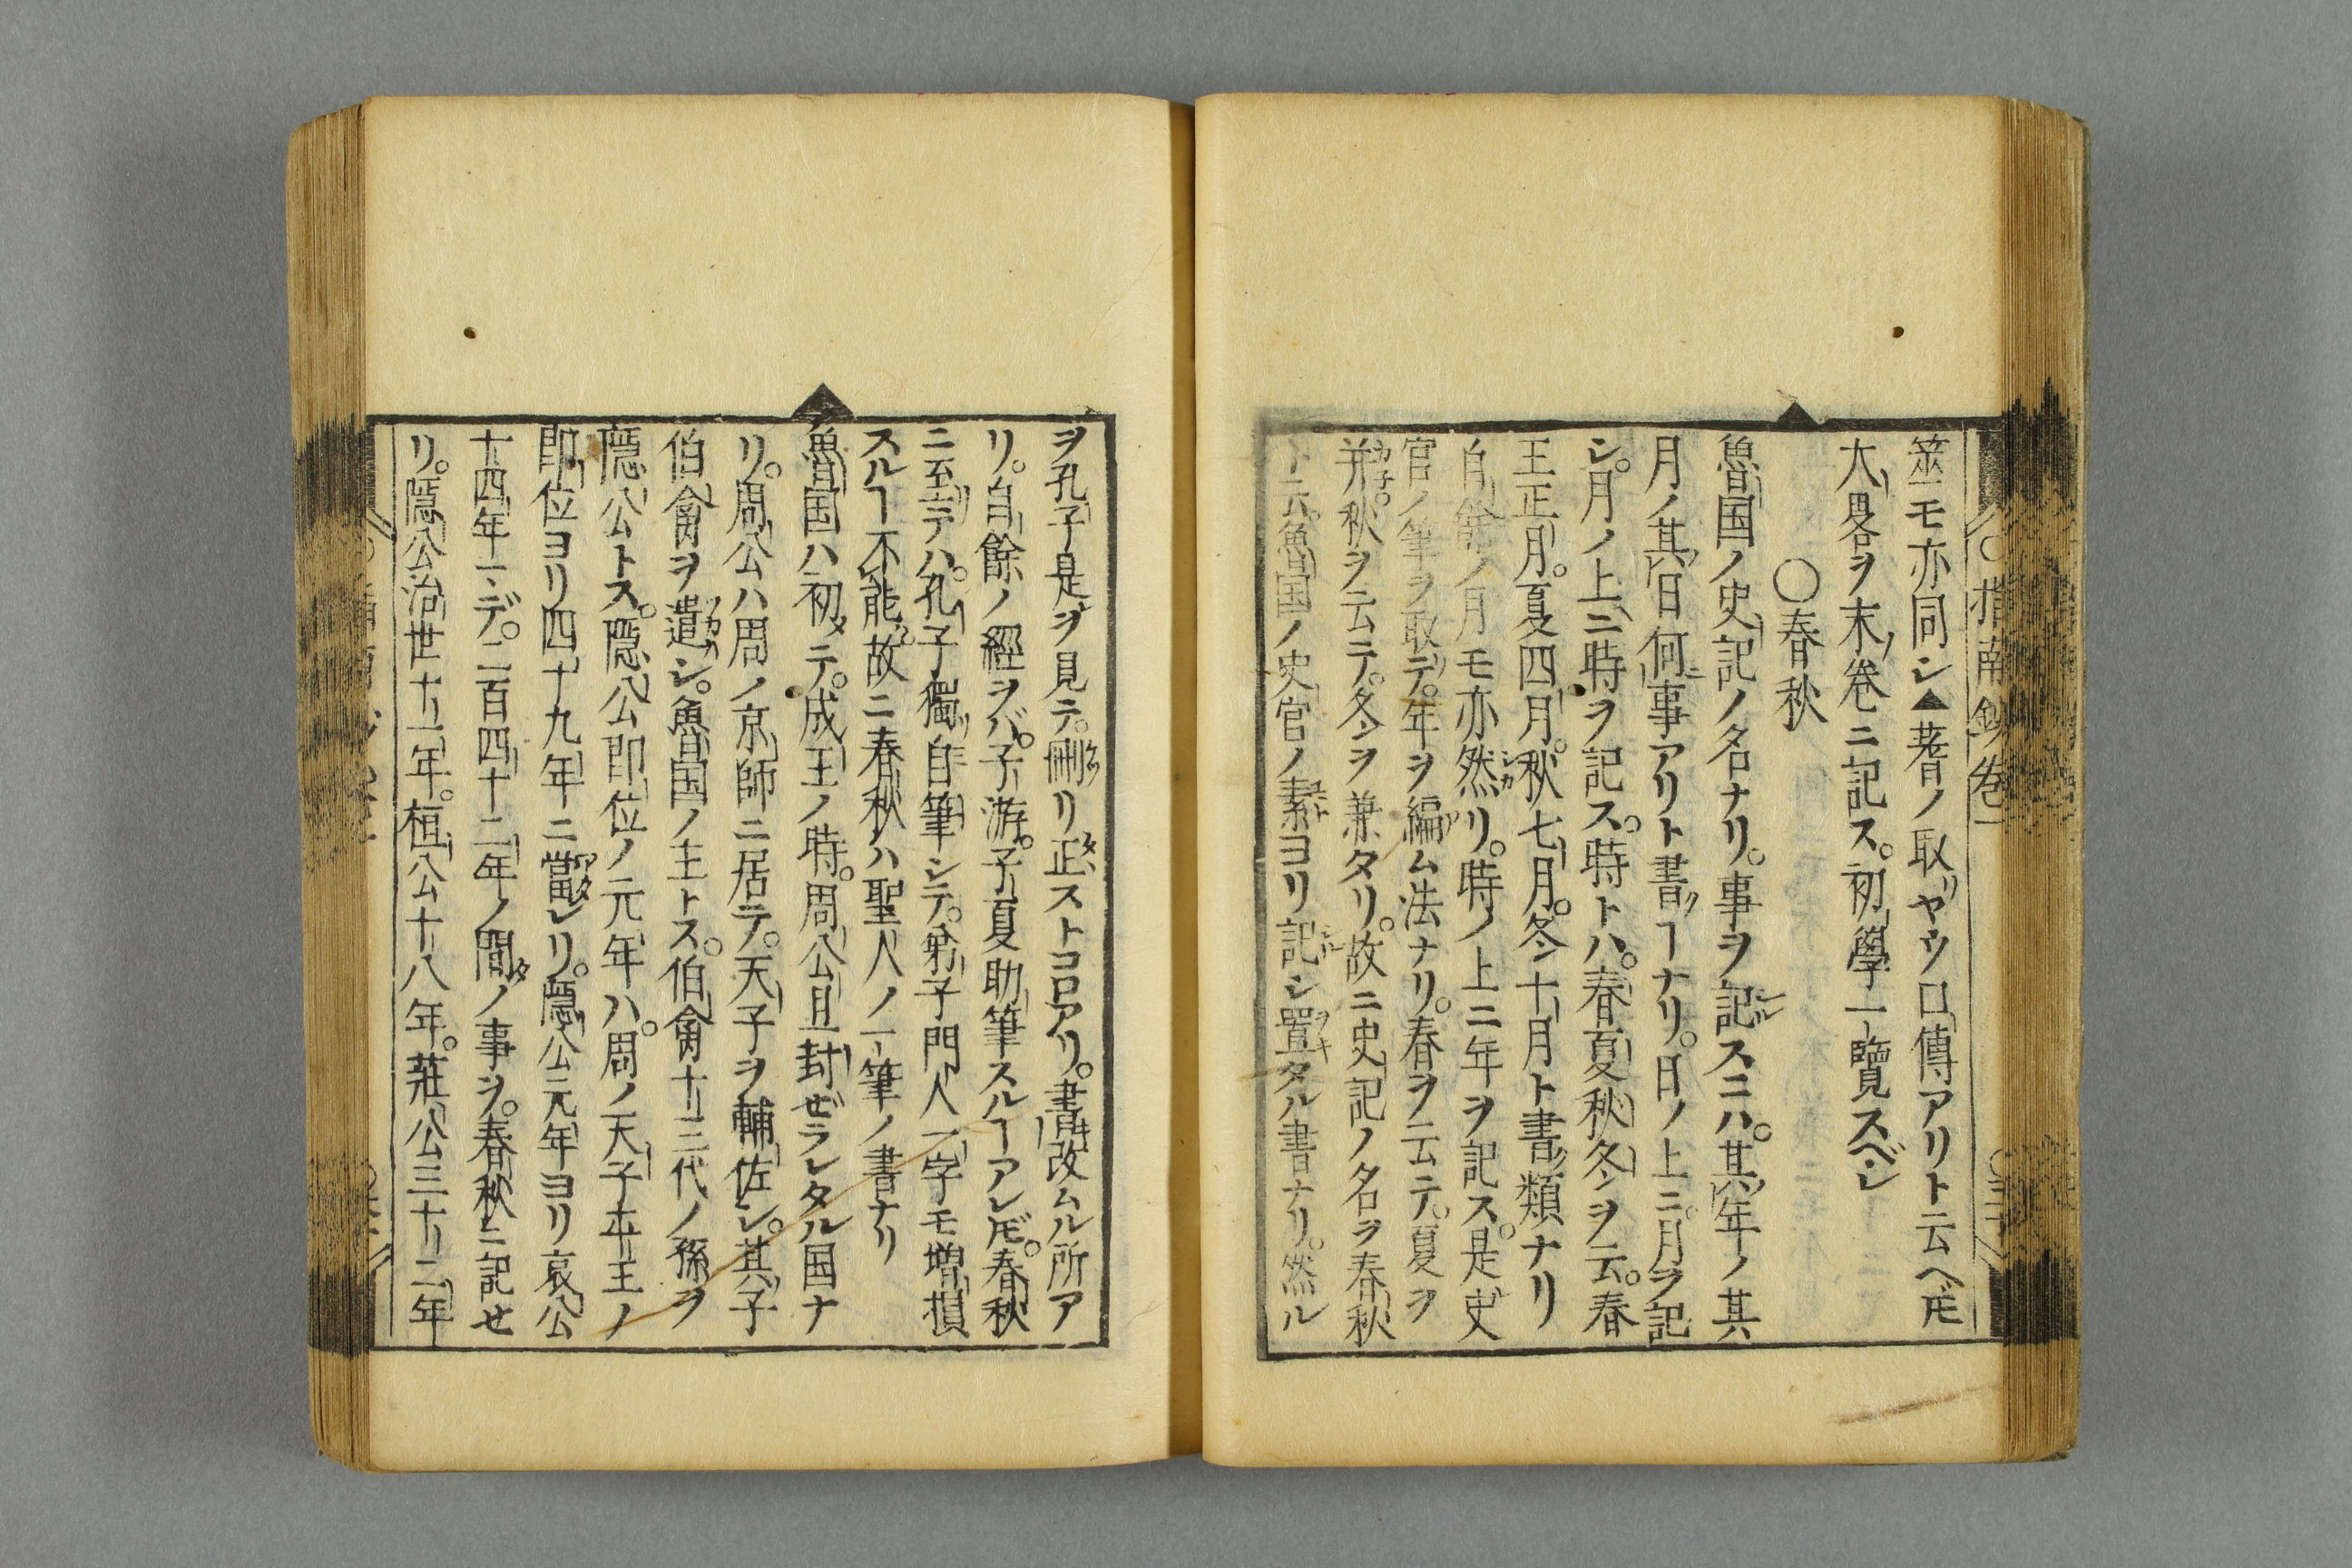 ○指南鈔卷一
筮モ亦同シ▲蓍ノ取ヤウ口傳アリト云ヘ𪜈
大畧ヲ末卷ニ記ス。初學一覽スベシ
○春秋
魯国ノ史記ノ名ナリ。事ヲ記スニハ。其年ノ其
月ノ其日何事アリト書ヿナリ。日ノ上ニ。月ヲ記
シ。月ノ上ニ時ヲ記ス。時トハ。春夏秋冬ヲ云。春
王正月。夏四月。秋七月。冬十月ト書類ナリ
自餘ノ月モ亦然リ。時ノ上ニ年ヲ記ス。是史
官ノ筆ヲ取テ。年ヲ編ム法ナリ。春ヲ云テ。夏ヲ
并。秋ヲ云テ。冬ヲ兼タリ。故ニ史記ノ名ヲ春秋
ト云。魯国ノ史官ノ素ヨリ記シ置タル書ナリ。然ル
ヲ孔子是ヲ見テ。刪リ正ストコロアリ。書改ムル所ア
リ。自餘ノ經ヲバ。子游。子夏助筆スルヿアレ𪜈。春秋
ニ至テハ。孔子獨自筆シテ。弟子門人一字モ増損
スルヿ不能。故ニ春秋ハ聖人ノ一筆ノ書ナリ
魯国ハ初テ。成王ノ時。周公旦封ゼラレタル国ナ
リ。周公ハ周ノ京師ニ居テ。天子ヲ輔佐シ。其子
伯禽ヲ遣シ。魯国ノ主トス。伯禽十三代ノ孫ヲ
隱公トス。隱公即位ノ元年ハ。周ノ天子平王ノ
即位ヨリ四十九年ニ當レリ。隱公元年ヨリ哀公
十四年マデ。二百四十二年ノ間ノ事ヲ。春秋ニ記セ
リ。隱公治世十一年。桓公十八年。莊公三十二年